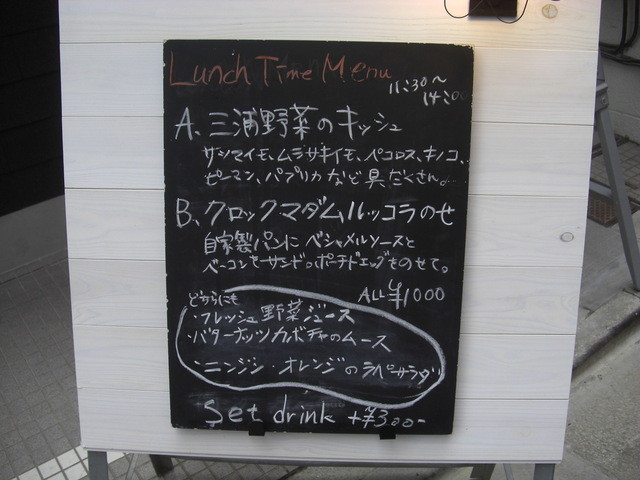 Lunch Time Menu
11:30〜
14:00
A、三浦野菜のキッシュ
サツマイモ、ムラサキイモ、ペコロス、キノコ、
ピーマン、パプリカなど具だくさん。
B、クロックマダムルッコラのせ
自家製パンにベシャメルソースと
ベーコンをサンド。ポーチドエッグものせて。
ALL ¥1000
どちらにも
・フレッシュ野菜ジュース
・バターナッツカボチャのムース
・ニンジン・オレンジのラペサラダ
Set drink +¥300-